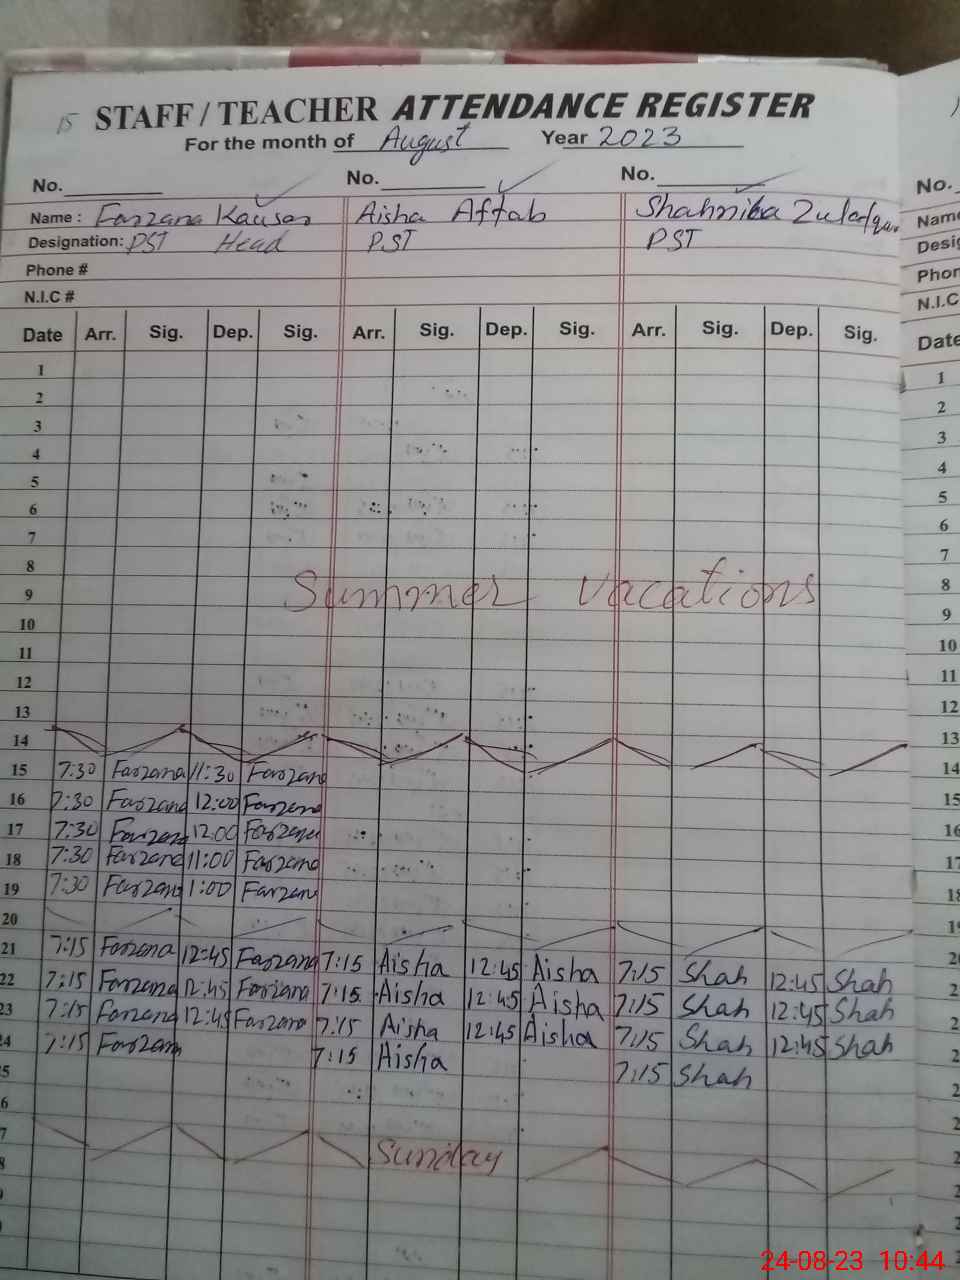 15 STAFF / TEACHER ATTENDANCE REGISTER
For the month of August Year 2023
No. No. No. No.
Name : Farzana Kauser Aisha Aftab Shahniba Zulafqar Name
Designation: PST Head PST PST Desig
Phone # Phon
N.I.C # N.I.C
Date Arr. Sig. Dep. Sig. Arr. Sig. Dep. Sig. Arr. Sig. Dep. Sig. Date
1 1
2 2
3 3
4 4
5 5
6 6
7 7
8 8
9 Summer vacations 9
10 10
11 11
12 12
13 13
14 14
15 7:30 Farzana 11:30 Farzana 15
16 7:30 Farzana 12:00 Farzana 16
17 7:30 Farzana 12:00 Farzana 17
18 7:30 Farzana 11:00 Farzana 18
19 7:30 Farzana 1:00 Farzana 19
20 20
21 7:15 Farzana 12:45 Farzana 7:15 Aisha 12:45 Aisha 7:15 Shah 12:45 Shah
22 7:15 Farzana 12:45 Farzana 7:15 Aisha 12:45 Aisha 7:15 Shah 12:45 Shah
23 7:15 Farzana 12:45 Farzana 7:15 Aisha 12:45 Aisha 7:15 Shah 12:45 Shah
24 7:15 Farzana 7:15 Aisha 7:15 Shah
5
6
7 Sunday
8
9
24-08-23 10:44